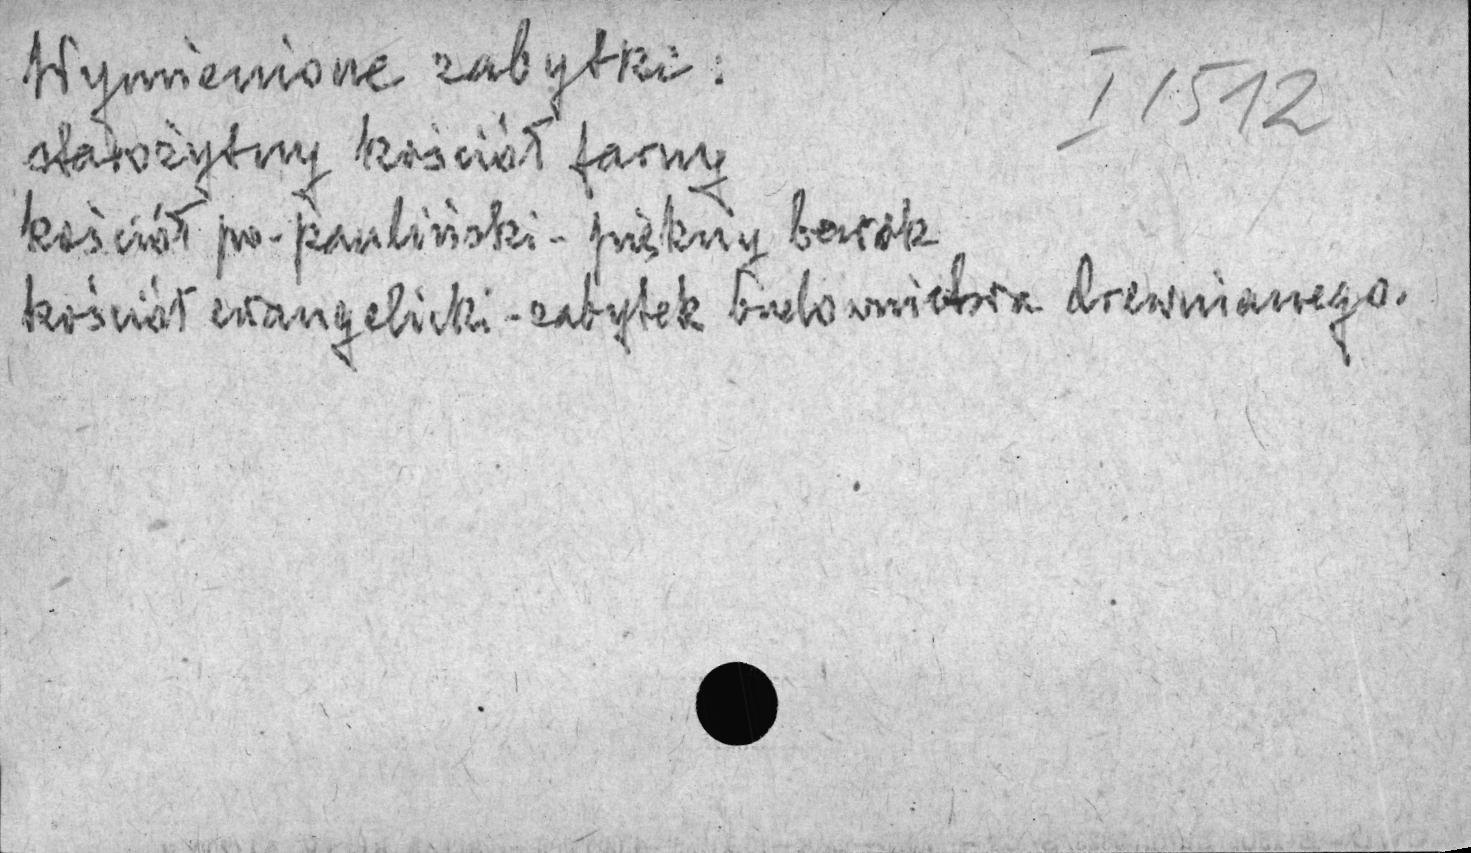 Wymienione zabytki:
I 1512
starożytny kościół farny
kościół po-pauliński - piękny barok
kościół ewangelicki - zabytek budownictwa drewnianego.